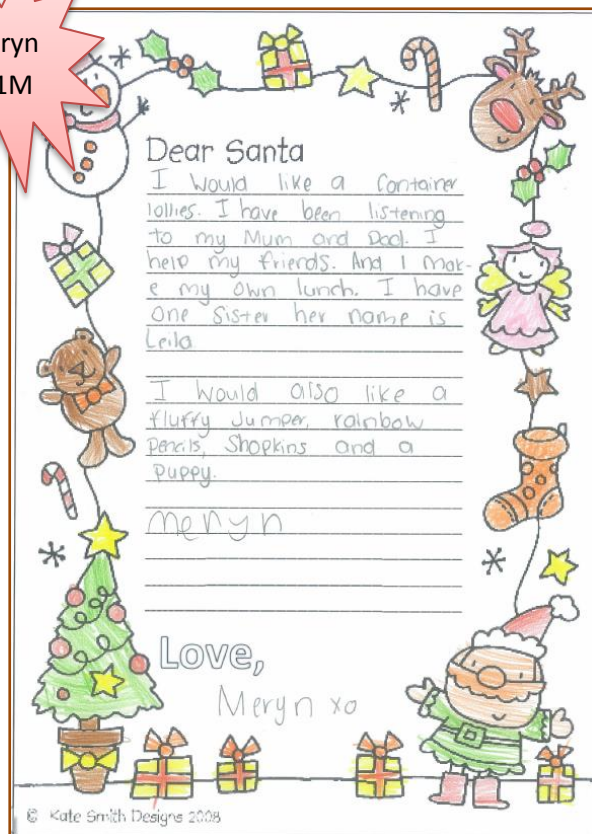 ryn
1M
Dear Santa
I would like a container
lollies. I have been listening
to my Mum and Dad. I
help my friends. And I mak-
e my own lunch. I have
one sister her name is
Leila
I would also like a
fluffy Jumper, rainbow
pencils, Shopkins and a
puppy.
meryn
Love,
Meryn xo
© Kate Smith Designs 2008